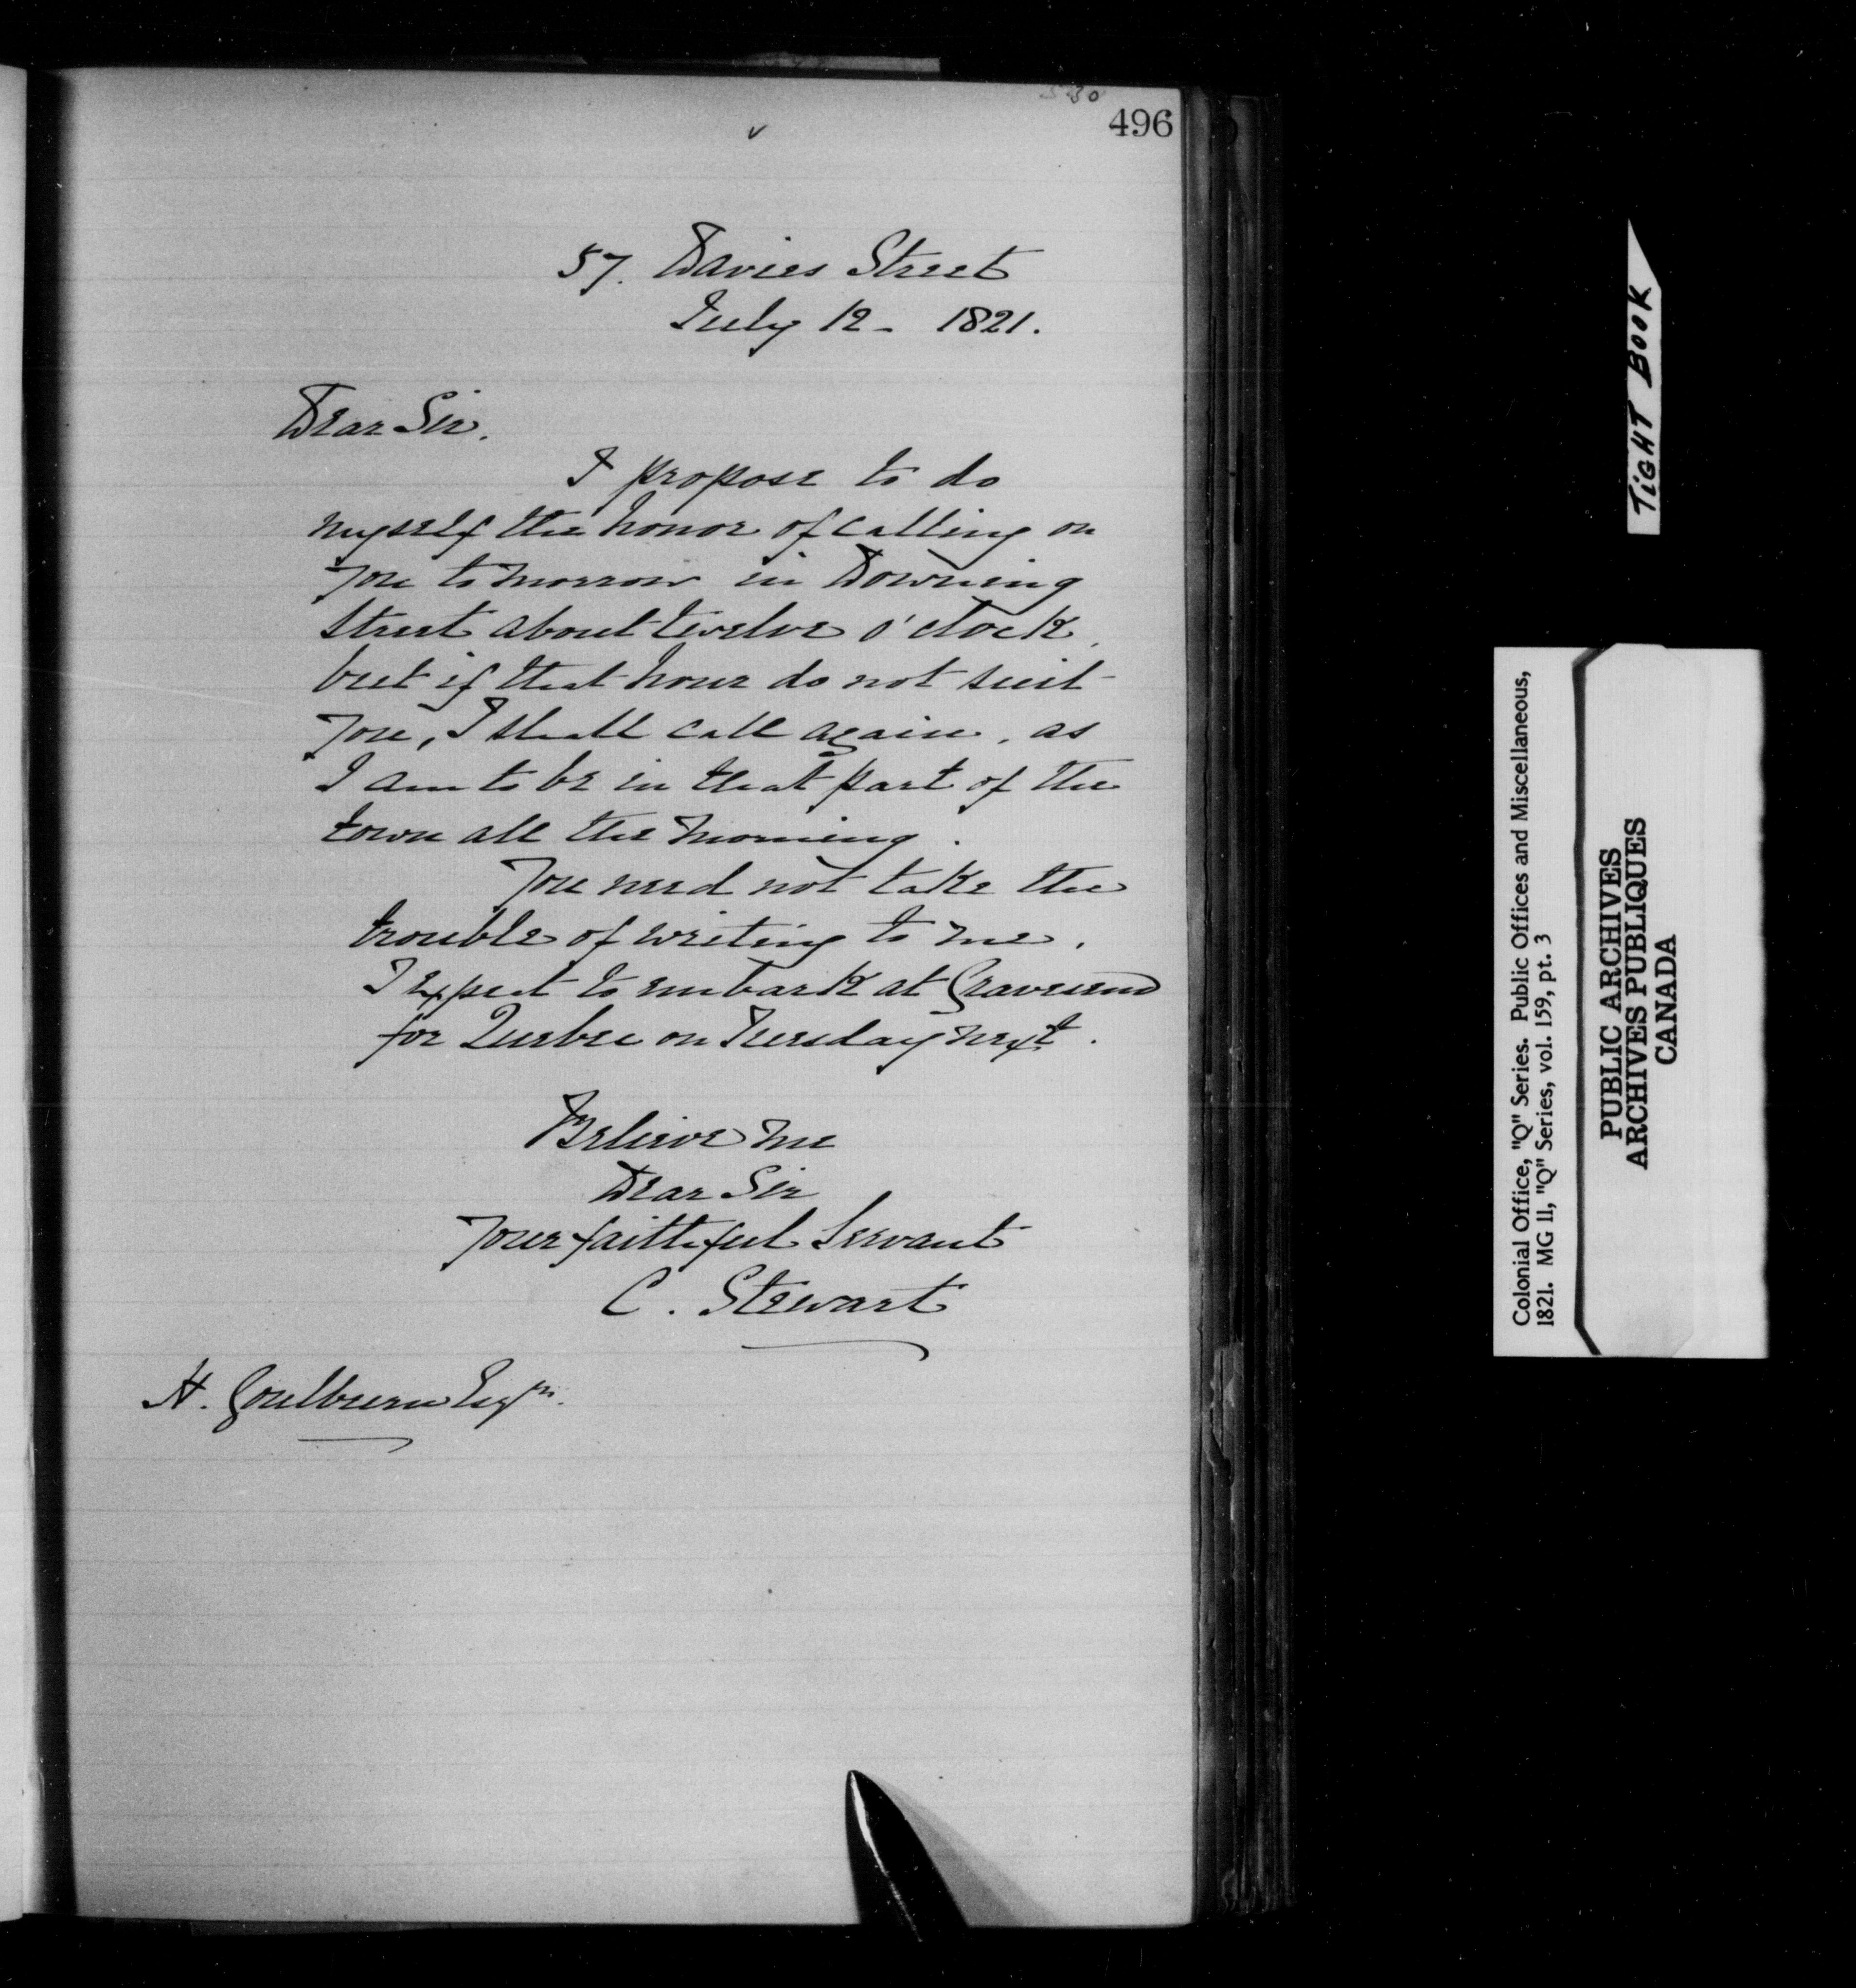 496
57. Davies Street
July 12 - 1821.
Dear Sir.
I propose to do
myself the honor of calling on
you to morrow in Downing
Street about twelve o'clock,
but if that hour do not suit
you, I shall call again, as
I am to be in that part of the
town all the morning.
You need not take the
trouble of writing to me.
I expect to embark at Gravesend
for Quebec on Tuesday next.
Believe me
Dear Sir
Your faithful Servant
C. Stewart
H. Goulburn Esqre.
TIGHT BOOK
Colonial Office, "Q" Series. Public Offices and Miscellaneous,
1821. MG 11, "Q" Series, vol. 159, pt. 3
PUBLIC ARCHIVES
ARCHIVES PUBLIQUES
CANADA